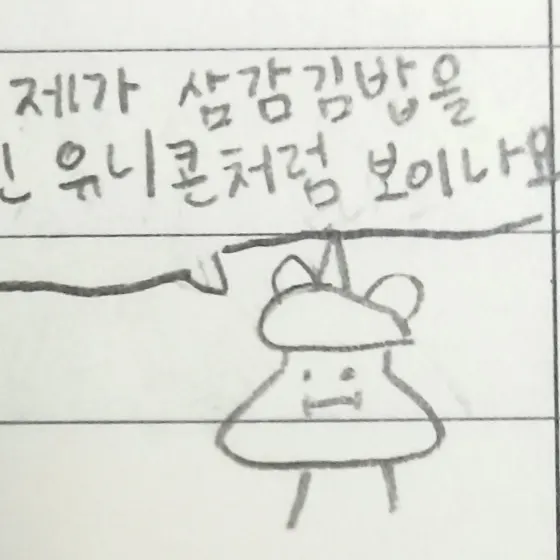 제가 삼감김밥을
인 유니콘처럼 보이나요